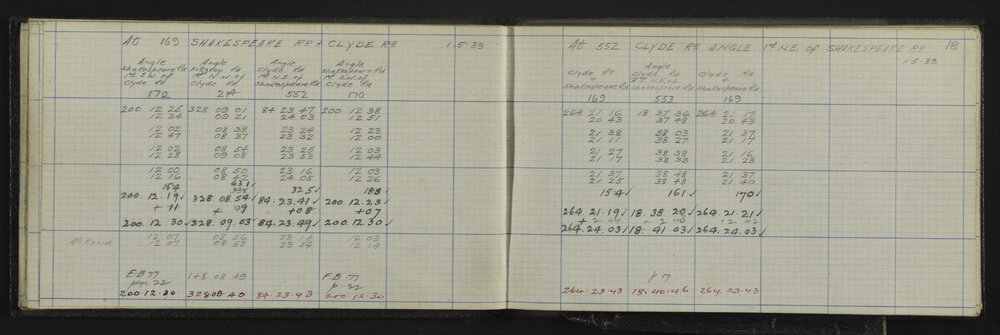 At 169 SHAKESPEARE RD + CLYDE RD 1.5.33
Angle Angle Angle Angle
Shakespeare Rd Fitzroy Rd Clyde Rd Shakespeare Rd
1st S.W. of 1st N.W. of 1st N.E. of 1st S.W. of
Clyde Rd Clyde Rd Shakespeare Rd Clyde Rd
170 214 552 170
200 12 25 328 09 01 84 23 47 200 12 38
12 34 09 21 24 03 12 51
12 02 08 38 23 24 12 23
12 47 08 37 23 32 12 00
12 02 08 54 23 25 12 03
12 28 09 08 23 33 12 44
12 00 08 50 23 16 12 03
12 16 08 42 24 05 12 26
154 431✓ 325✓ 188✓
200.12.19✓ 328.08.54✓ 84.23.41✓ 200.12.23✓
+ 11 + 09 +08 +07
200.12.30✓ 328.09.03✓ 84.23.49✓ 200.12.30✓
4th Round 12 07 08 56 23 19 12 03
12 07 08 58 23 54 12 14
F.B 77 148 08 49 F.B 77
page 22 p 22
200.12.30 328 08.49 84.23.43 200.12.30
At 552 CLYDE RD ANGLE 1st N.E of SHAKESPEARE RD 18
1.5.33
Clyde Rd Angle Clyde Rd
Clyde Rd
Shakespeare Rd 1st N.E. of Shakespeare Rd
Shakespeare Rd
169 553 169
264 21 16 18 37 36 264 21 17
20 43 37 48 20 43
21 38 38 03 21 37
21 11 38 27 21 17
21 27 38 38 21 16
21 17 38 33 21 23
21 37 38 48 21 37
21 25 38 48 21 40
154✓ 161✓ 170✓
264.21.19✓ 18.38 20✓ 264.21.21✓
+ 2 44 2 40 2 42
264.24.03✓ 18.41 03✓ 264.24.03✓
p 17
264.23.43 18.40.46 264.23.43